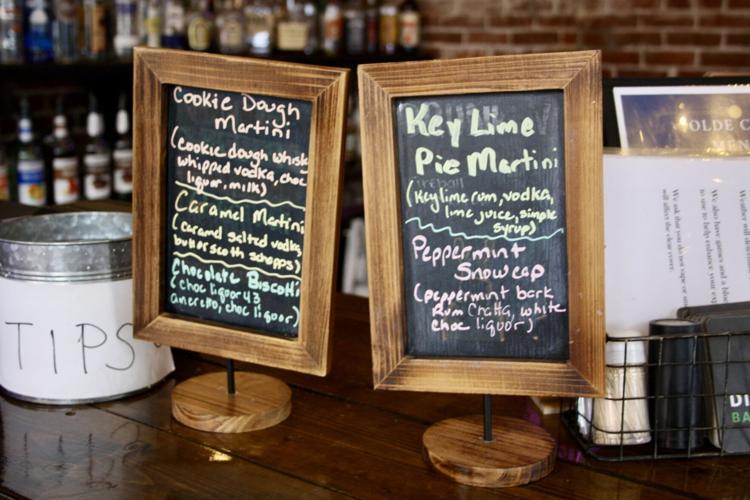 Cookie Dough
Martini
(cookie dough whisky
whipped vodka, choc
liquor, milk)
Caramel Martini
(caramel salted vodka,
butterscoth schapps)
Chocolate Biscotti
(choc liquor 43
amaretto, choc liquor)
Key Lime
Pie Martini
(Key lime rum, vodka,
lime juice, simple
syrup)
Peppermint
Snowcap
(peppermint bark
Rum Chatta, white
choc liquor)
TIPS
OLDE
MEN
We also have games and a
to use to help enhance your
We ask that you do not
will affect the
DI
BA